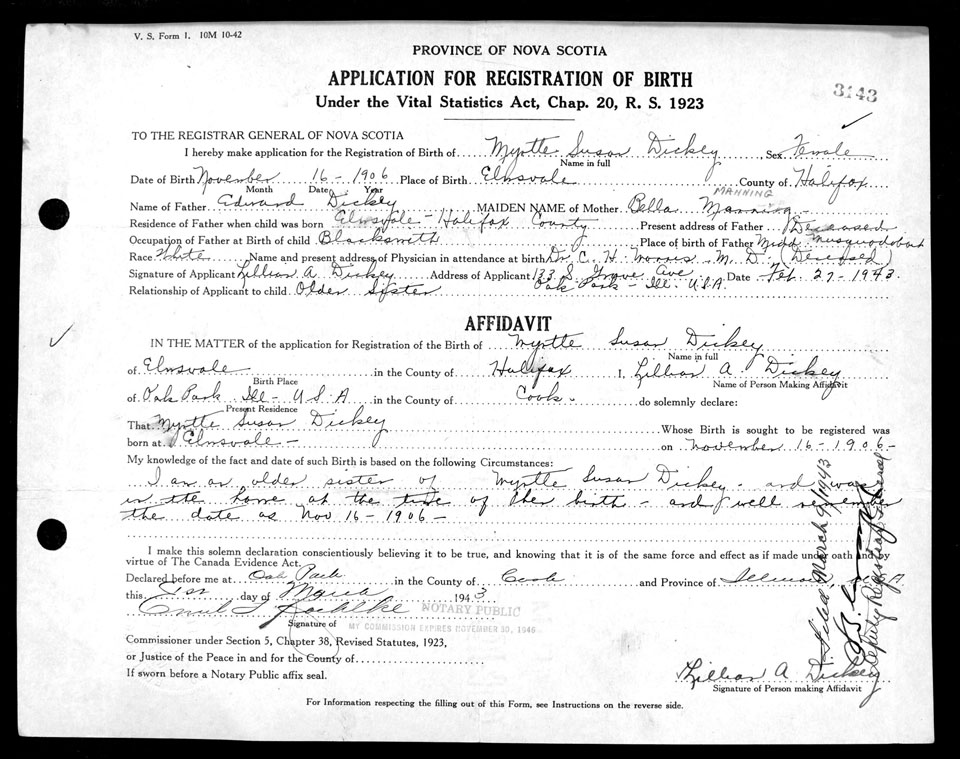 V. S. Form 1. 10M 10-42
PROVINCE OF NOVA SCOTIA
APPLICATION FOR REGISTRATION OF BIRTH
3143
Under the Vital Statistics Act, Chap. 20, R. S. 1923
TO THE REGISTRAR GENERAL OF NOVA SCOTIA
I hereby make application for the Registration of Birth of Myrtle Susan Dickey Sex Female
Name in full
Date of Birth November 16 - 1906 Place of Birth Elmsvale County of Halifax
Month Date Year
MANNING
Name of Father Edward Dickey MAIDEN NAME of Mother Bella Manning
Residence of Father when child was born Elmsvale - Halifax County Present address of Father (Deceased)
Occupation of Father at Birth of child Blacksmith Place of birth of Father Midd Musquodoboit
Race White Name and present address of Physician in attendance at birth Dr. C. H. Morris M. D. (Deceased)
Signature of Applicant Lillian A Dickey Address of Applicant 133 S. Grove Ave Date Feb. 27 - 1943.
Relationship of Applicant to child Older Sister Oak Park - Ill. U.S.A.
AFFIDAVIT
IN THE MATTER of the application for Registration of the Birth of Myrtle Susan Dickey
Name in full
of Elmsvale in the County of Halifax I, Lillian A. Dickey
Birth Place Name of Person Making Affidavit
of Oak Park Ill - U S A in the County of Cook. do solemnly declare:
Present Residence
That Myrtle Susan Dickey Whose Birth is sought to be registered was
born at Elmsvale - on November 16 - 1906 -
My knowledge of the fact and date of such Birth is based on the following Circumstances:
I am an older sister of Myrtle Susan Dickey - and was
in the home at the time of her birth - and well remember
the date as Nov 16 - 1906 -
I make this solemn declaration conscientiously believing it to be true, and knowing that it is of the same force and effect as if made under oath and by
virtue of The Canada Evidence Act.
Declared before me at Oak Park in the County of Cook and Province of Illinois, U.S.A.
this 1st day of March 1943
Emil NOTARY PUBLIC
Signature of MY COMMISSION EXPIRES NOVEMBER 30, 1946
Commissioner under Section 5, Chapter 38, Revised Statutes, 1923,
or Justice of the Peace in and for the County of
If sworn before a Notary Public affix seal.
Lillian A Dickey
Signature of Person making Affidavit
For Information respecting the filling out of this Form, see Instructions on the reverse side.
Filed March 9/1943
Deputy Registrar General